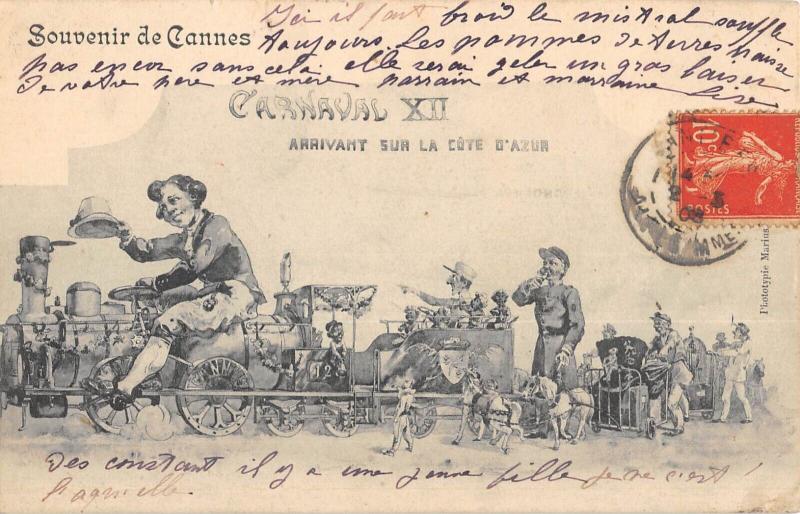 Ici il fait froid le mistral souffle
Souvenir de Cannes
toujours les pommes de terres
pas encor sans cela elle serai geler un gros baiser
de votre pere et mère parrain et marraine
Lise
CARNAVAL XII
ARRIVANT SUR LA CÔTE D'AZUR
10c
POSTES
Phototypie Marius
Des constant il y a une jeune fille je ne c'est !
laquelle